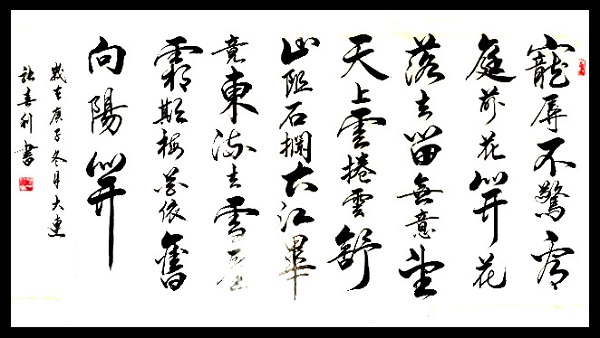 寵辱不驚看
庭前花開花
落去留無意望
天上雲捲雲舒
山阻石攔大江畢
竟東流去雪壓
霜欺梅花依舊
向陽開
歲在庚子冬月大連
喜利書